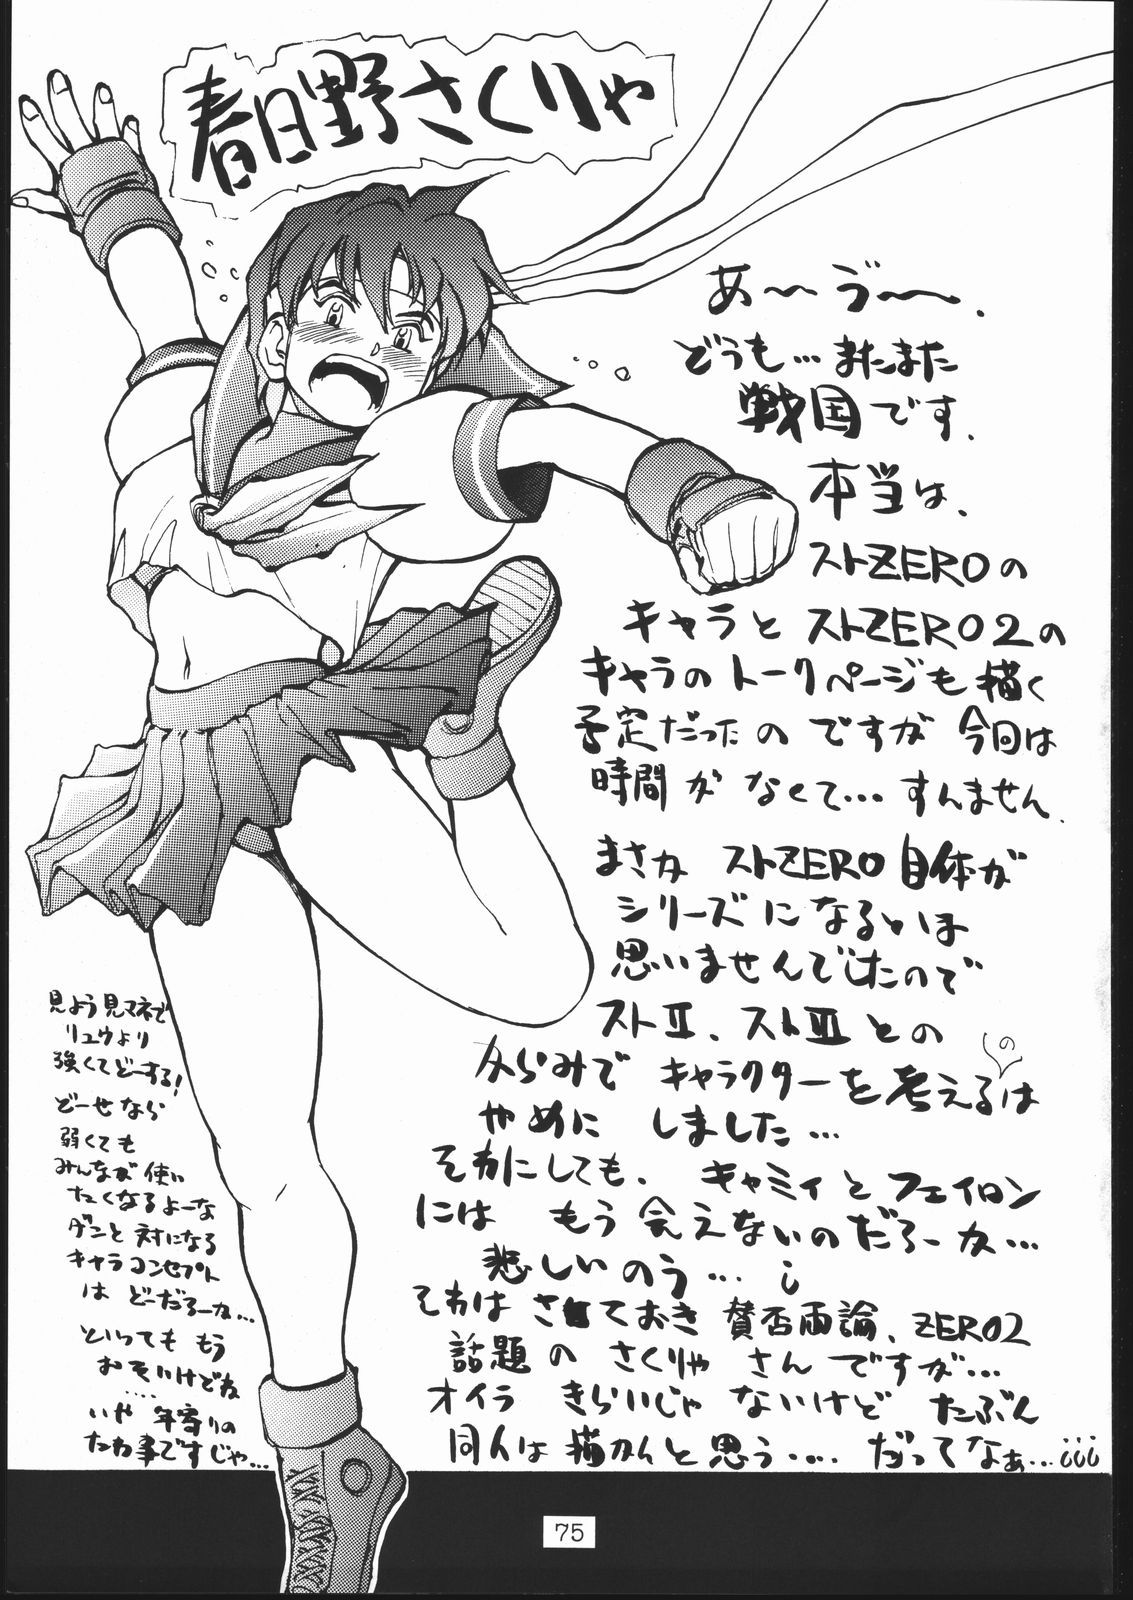 春日野さくりゃ
あ〜ゔ〜.
どうも…またまた
戦国です.
本当は、
ストZEROの
キャラとストZERO2の
キャラのトークページも描く
予定だったのですが今回は
時間がなくて…すんません.
まさかストZERO自体が
シリーズになるとは
思いませんでしたので
ストⅡ、ストⅢとの
からみでキャラクターを考えるのは
やめにしました…
それにしても、キャミィとフェイロン
にはもう会えないのだろーか…
悲しいのう…
それはさておき賛否両論、ZERO2
話題のさくりゃさんですが…
オイラきらいじゃないけどたぶん
同人は描かんと思う….だってなぁ…
見よう見マネで
リュウより
強くてどーする!
どーせなら
弱くても
みんなが使い
たくなるよーな
ダンと対になる
キャラコンセプト
はどーだろーか…
といってももう
おそいけどね
….
いや年寄りの
たわ事ですじゃ…
75